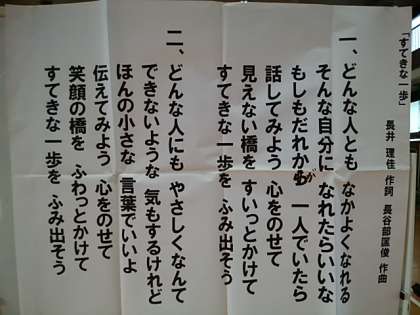 「すてきな一歩」
長井 理佳 作詞 長谷部匡俊 作曲
一、どんな人とも なかよくなれる
そんな自分に なれたらいいな
もしもだれかが 一人でいたら
話してみよう 心をのせて
見えない橋を すいっとかけて
すてきな一歩を ふみ出そう
二、どんな人にも やさしくなんて
できないような 気もするけれど
ほんの小さな 言葉でいいよ
伝えてみよう 心をのせて
笑顔の橋を ふわっとかけて
すてきな一歩を ふみ出そう